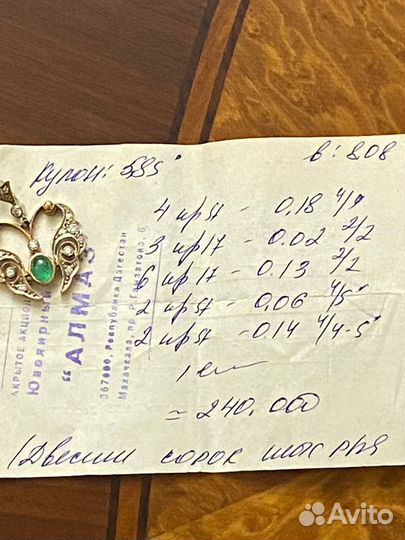 Кулон: 585° в: 8.08
4 кр 57 - 0.18 4/4
3 кр 17 - 0.02 2/2
6 кр 17 - 0.13 2/2
2 кр 57 - 0.06 4/5
2 кр 57 - 0.14 4/4-5
1
= 240.000
(Двести сорок тысяч
АКРЫТОЕ АКЦИО
Ювелирный
"АЛМАЗ"
367000, Республика Дагестан
Махачкала, пр. Р. Гамзатова, 6
Avito